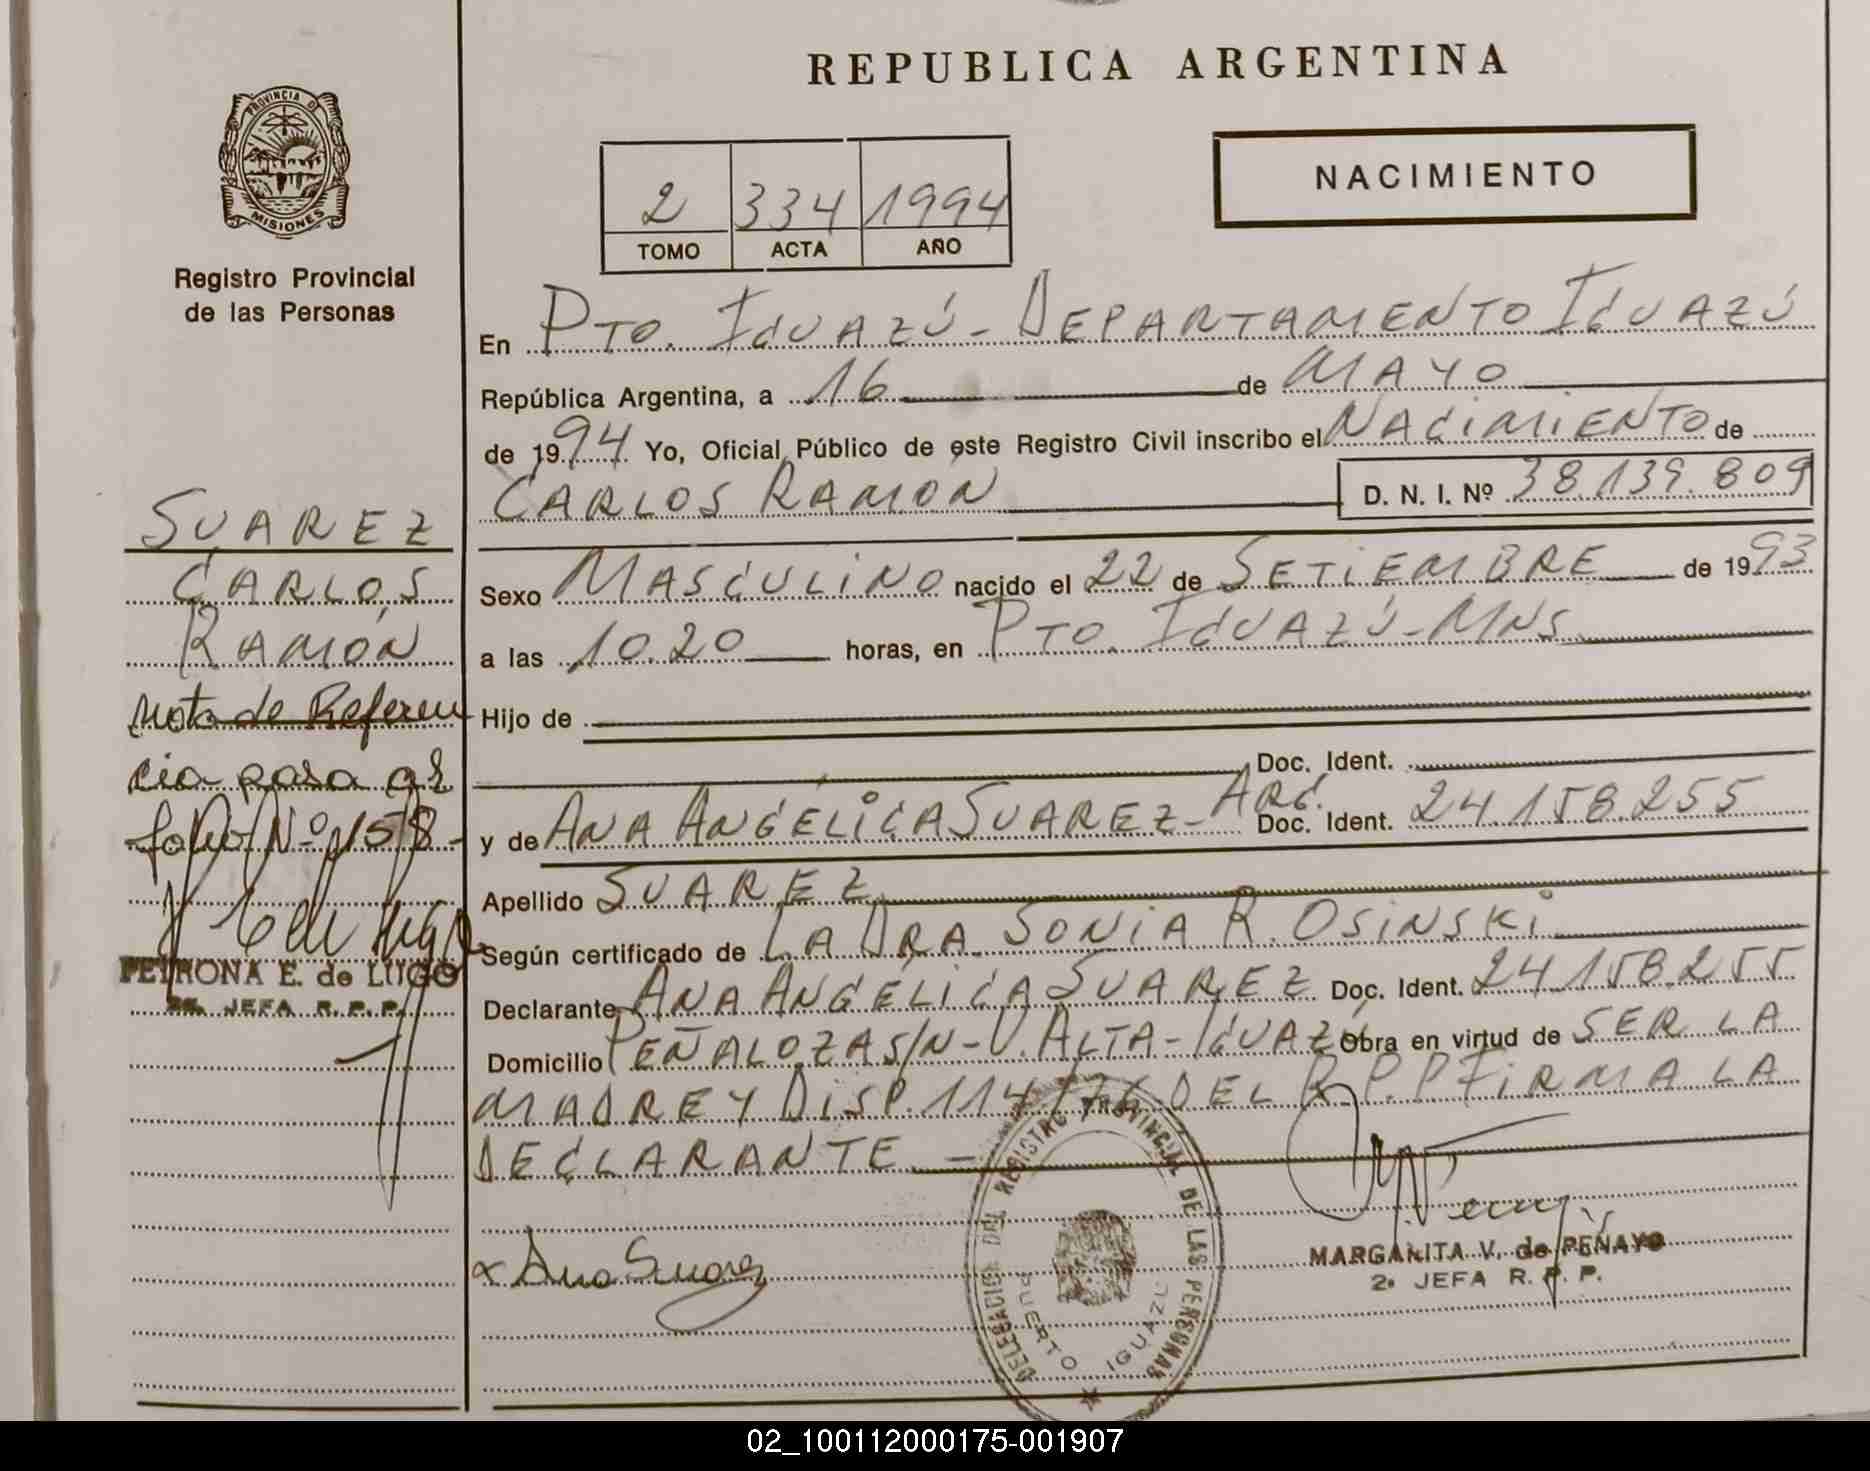 REPUBLICA ARGENTINA
PROVINCIA DE
MISIONES
Registro Provincial
de las Personas
2 334 1994
TOMO ACTA AÑO
NACIMIENTO
En PTO. IGUAZÚ - DEPARTAMENTO IGUAZÚ
República Argentina, a 16 de MAYO
de 1994 Yo, Oficial Público de este Registro Civil inscribo el NACIMIENTO de
CARLOS RAMÓN D. N. I. Nº 38.139.809
Sexo MASCULINO nacido el 22 de SETIEMBRE de 1993
a las 10.20 horas, en PTO. IGUAZÚ - MNS
Hijo de
Doc. Ident.
y de ANA ANGÉLICA SUAREZ - ARG. Doc. Ident. 24.158.255
Apellido SUAREZ
Según certificado de LA DRA SONIA R. OSINSKI
Declarante ANA ANGÉLICA SUAREZ Doc. Ident. 24.158.255
Domicilio PEÑALOZA S/N - V. ALTA - IGUAZÚ Obra en virtud de SER LA
MADRE Y DISP. 114/76 DEL R.P.P FIRMA LA
DECLARANTE -
x Ana Suarez
MARGARITA V. de PENAYO
2ª JEFA R. P. P.
DELEGACION DEL REGISTRO PROVINCIAL DE LAS PERSONAS
PUERTO IGUAZU
SUAREZ
CARLOS
RAMÓN
Nota de Referen
cia pasa al
folio Nº 158 -
PETRONA E. de LUGO
JEFA R. P. P.
02_100112000175-001907